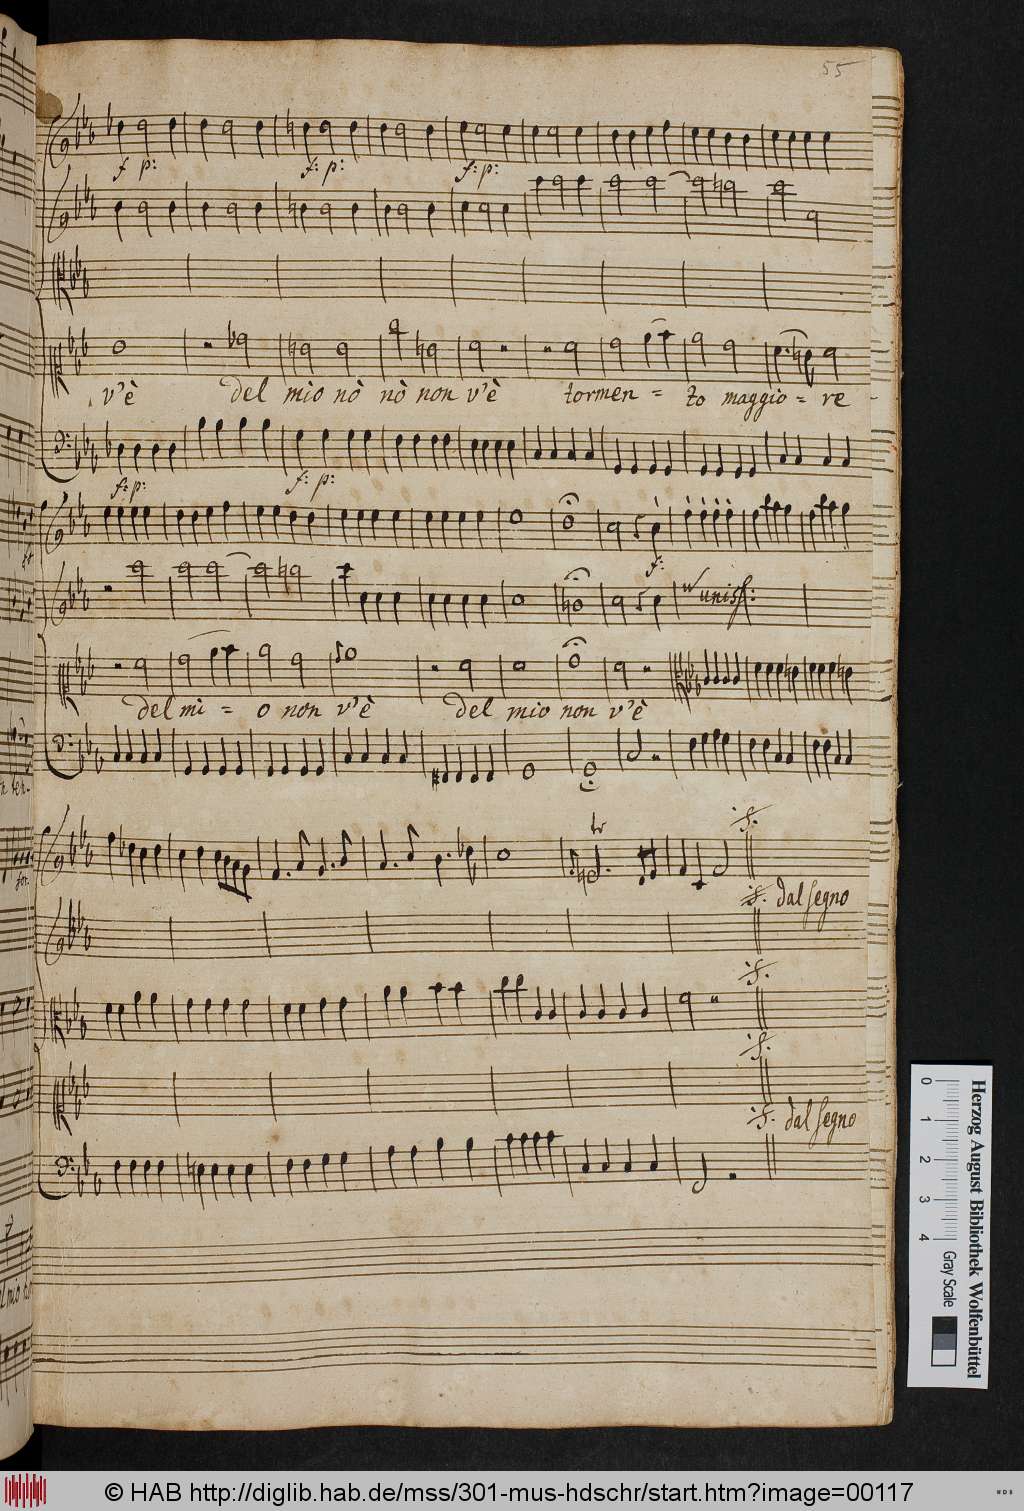 55
f p: f: p: f: p:
v'è del mio nò nò non v'è tormen = to maggio = re
f: p: f: p:
f:
unisſ:
del mi = o non v'è del mio non v'è
tr
dal segno
dal segno
Herzog August Bibliothek Wolfenbüttel
0 1 2 3 4 Gray Scale
© HAB http://diglib.hab.de/mss/301-mus-hdschr/start.htm?image=00117